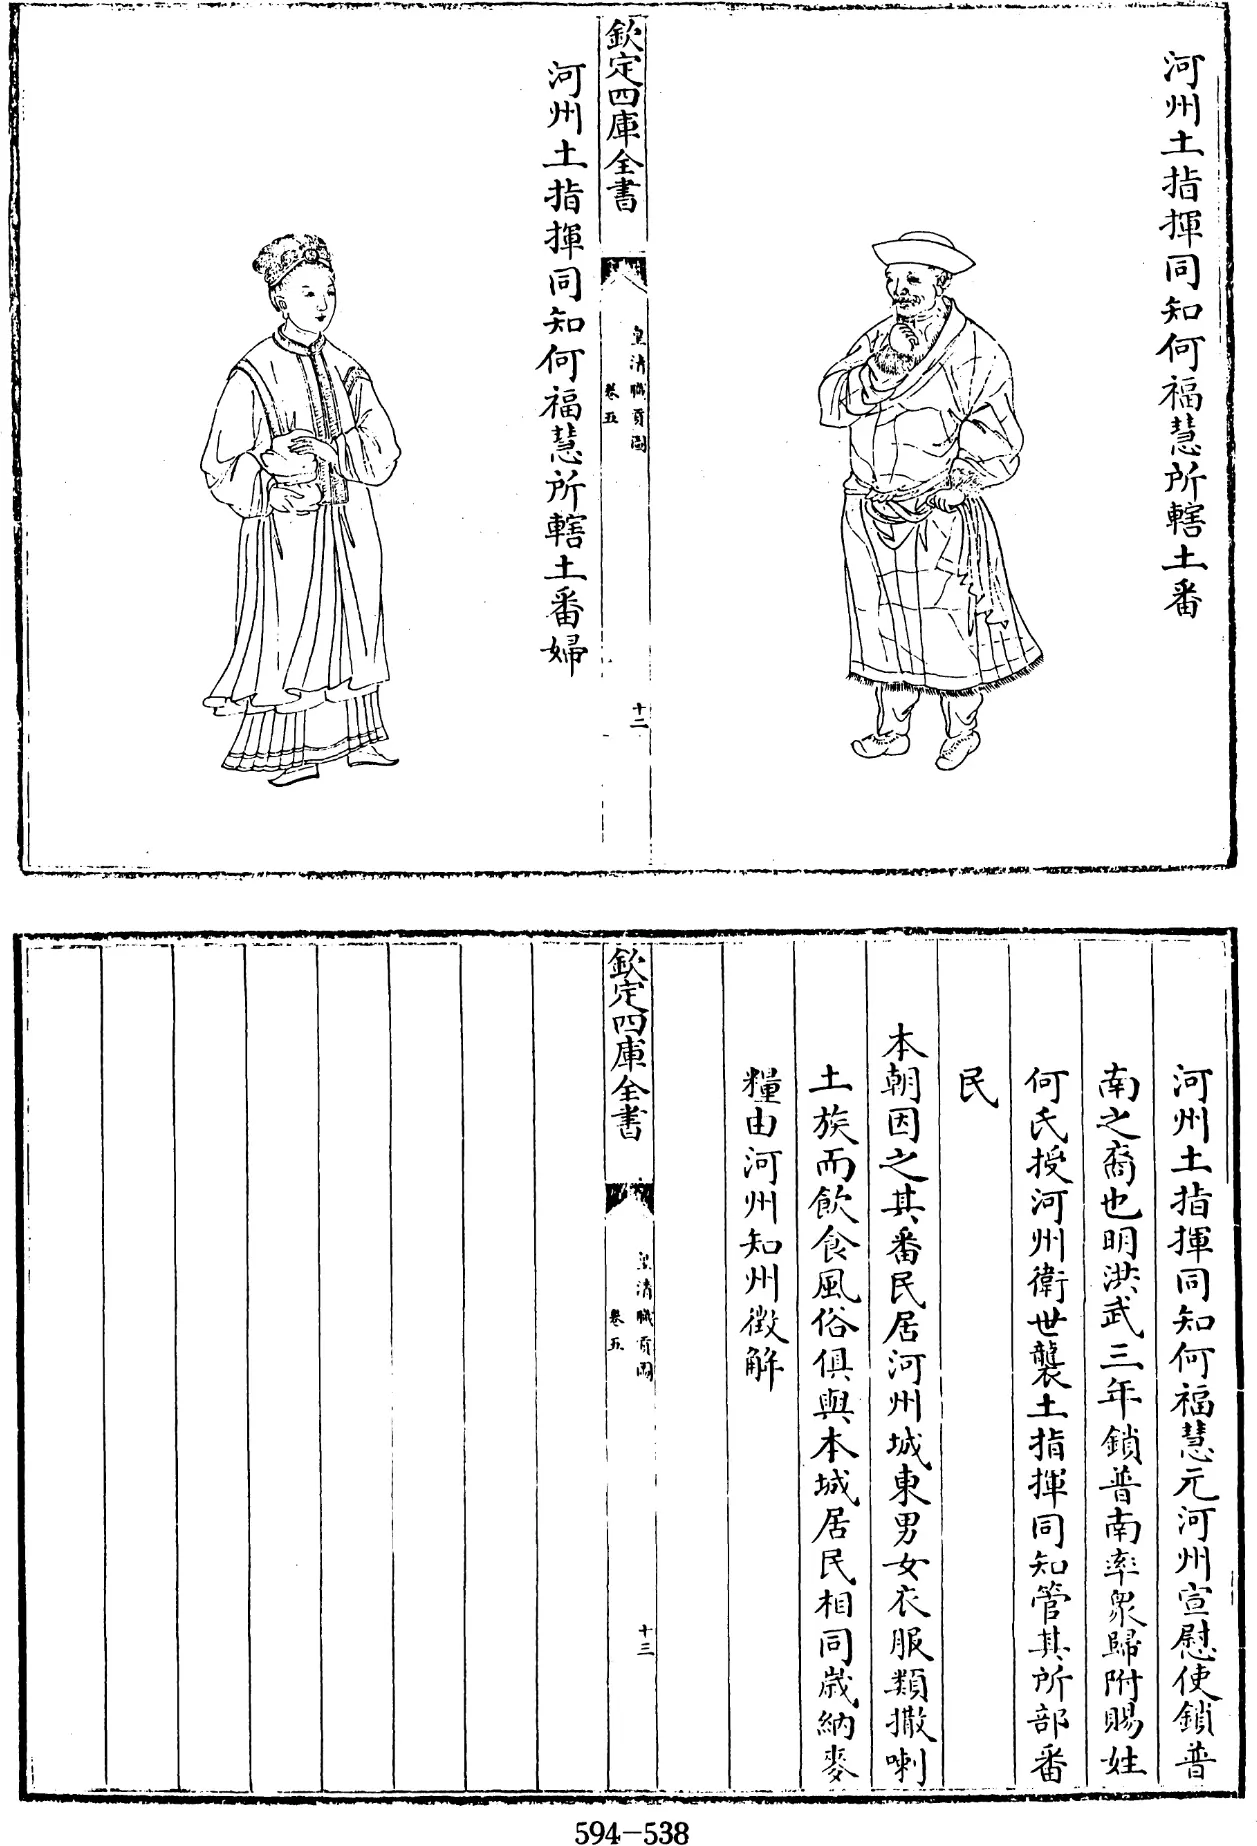 河州土指揮同知何福慧所轄土番
欽定四庫全書
皇清職貢圖
卷五
十二
河州土指揮同知何福慧所轄土番婦
河州土指揮同知何福慧元河州宣慰使鎖普
南之裔也明洪武三年鎖普南率衆歸附賜姓
何氏授河州衛世襲土指揮同知管其所部番
民
本朝因之其番民居河州城東男女衣服類撒喇
土族而飲食風俗俱與本城居民相同歲納麥
糧由河州知州徵解
欽定四庫全書
皇清職貢圖
卷五
十三
594-538